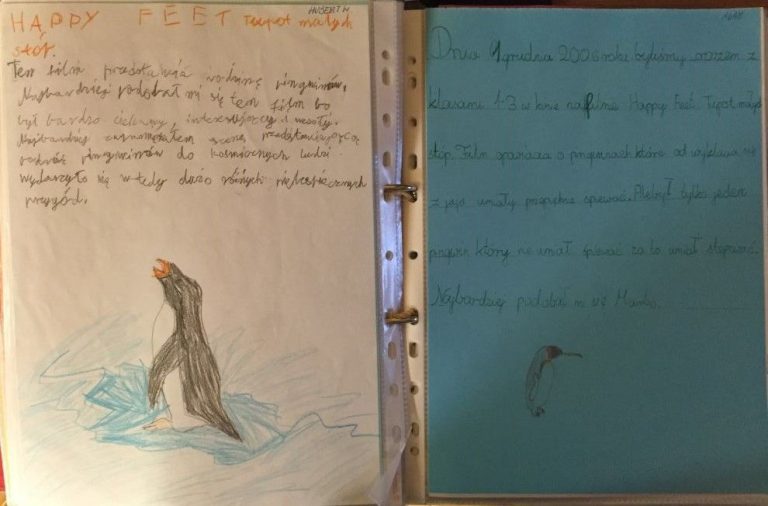 HUBERT N.
HAPPY FEET Tupot małych
stóp.
Ten film przedstawia rodzinę pingwinów.
Najbardziej podobał mi się ten film bo
był bardzo ciekawy, interesujący i wesoły.
Najbardziej zapamiętałem scenę przedstawiającą
podróż pingwinów do kosmicznych ludzi.
wydarzyło się wtedy dużo różnych niebezpiecznych
przygód.
Dnia 9 grudnia 2006 roku byliśmy razem z
klasami 1-3 w kinie na filmie Happy Feet Tupot małych
stóp. Film opowiada o pingwinach które od wyklucia się
z jaja umiały przepięknie śpiewać. Ale był tylko jeden
pingwin który nie umiał śpiewać za to umiał stepować.
Najbardziej podobał mi się Mambo.